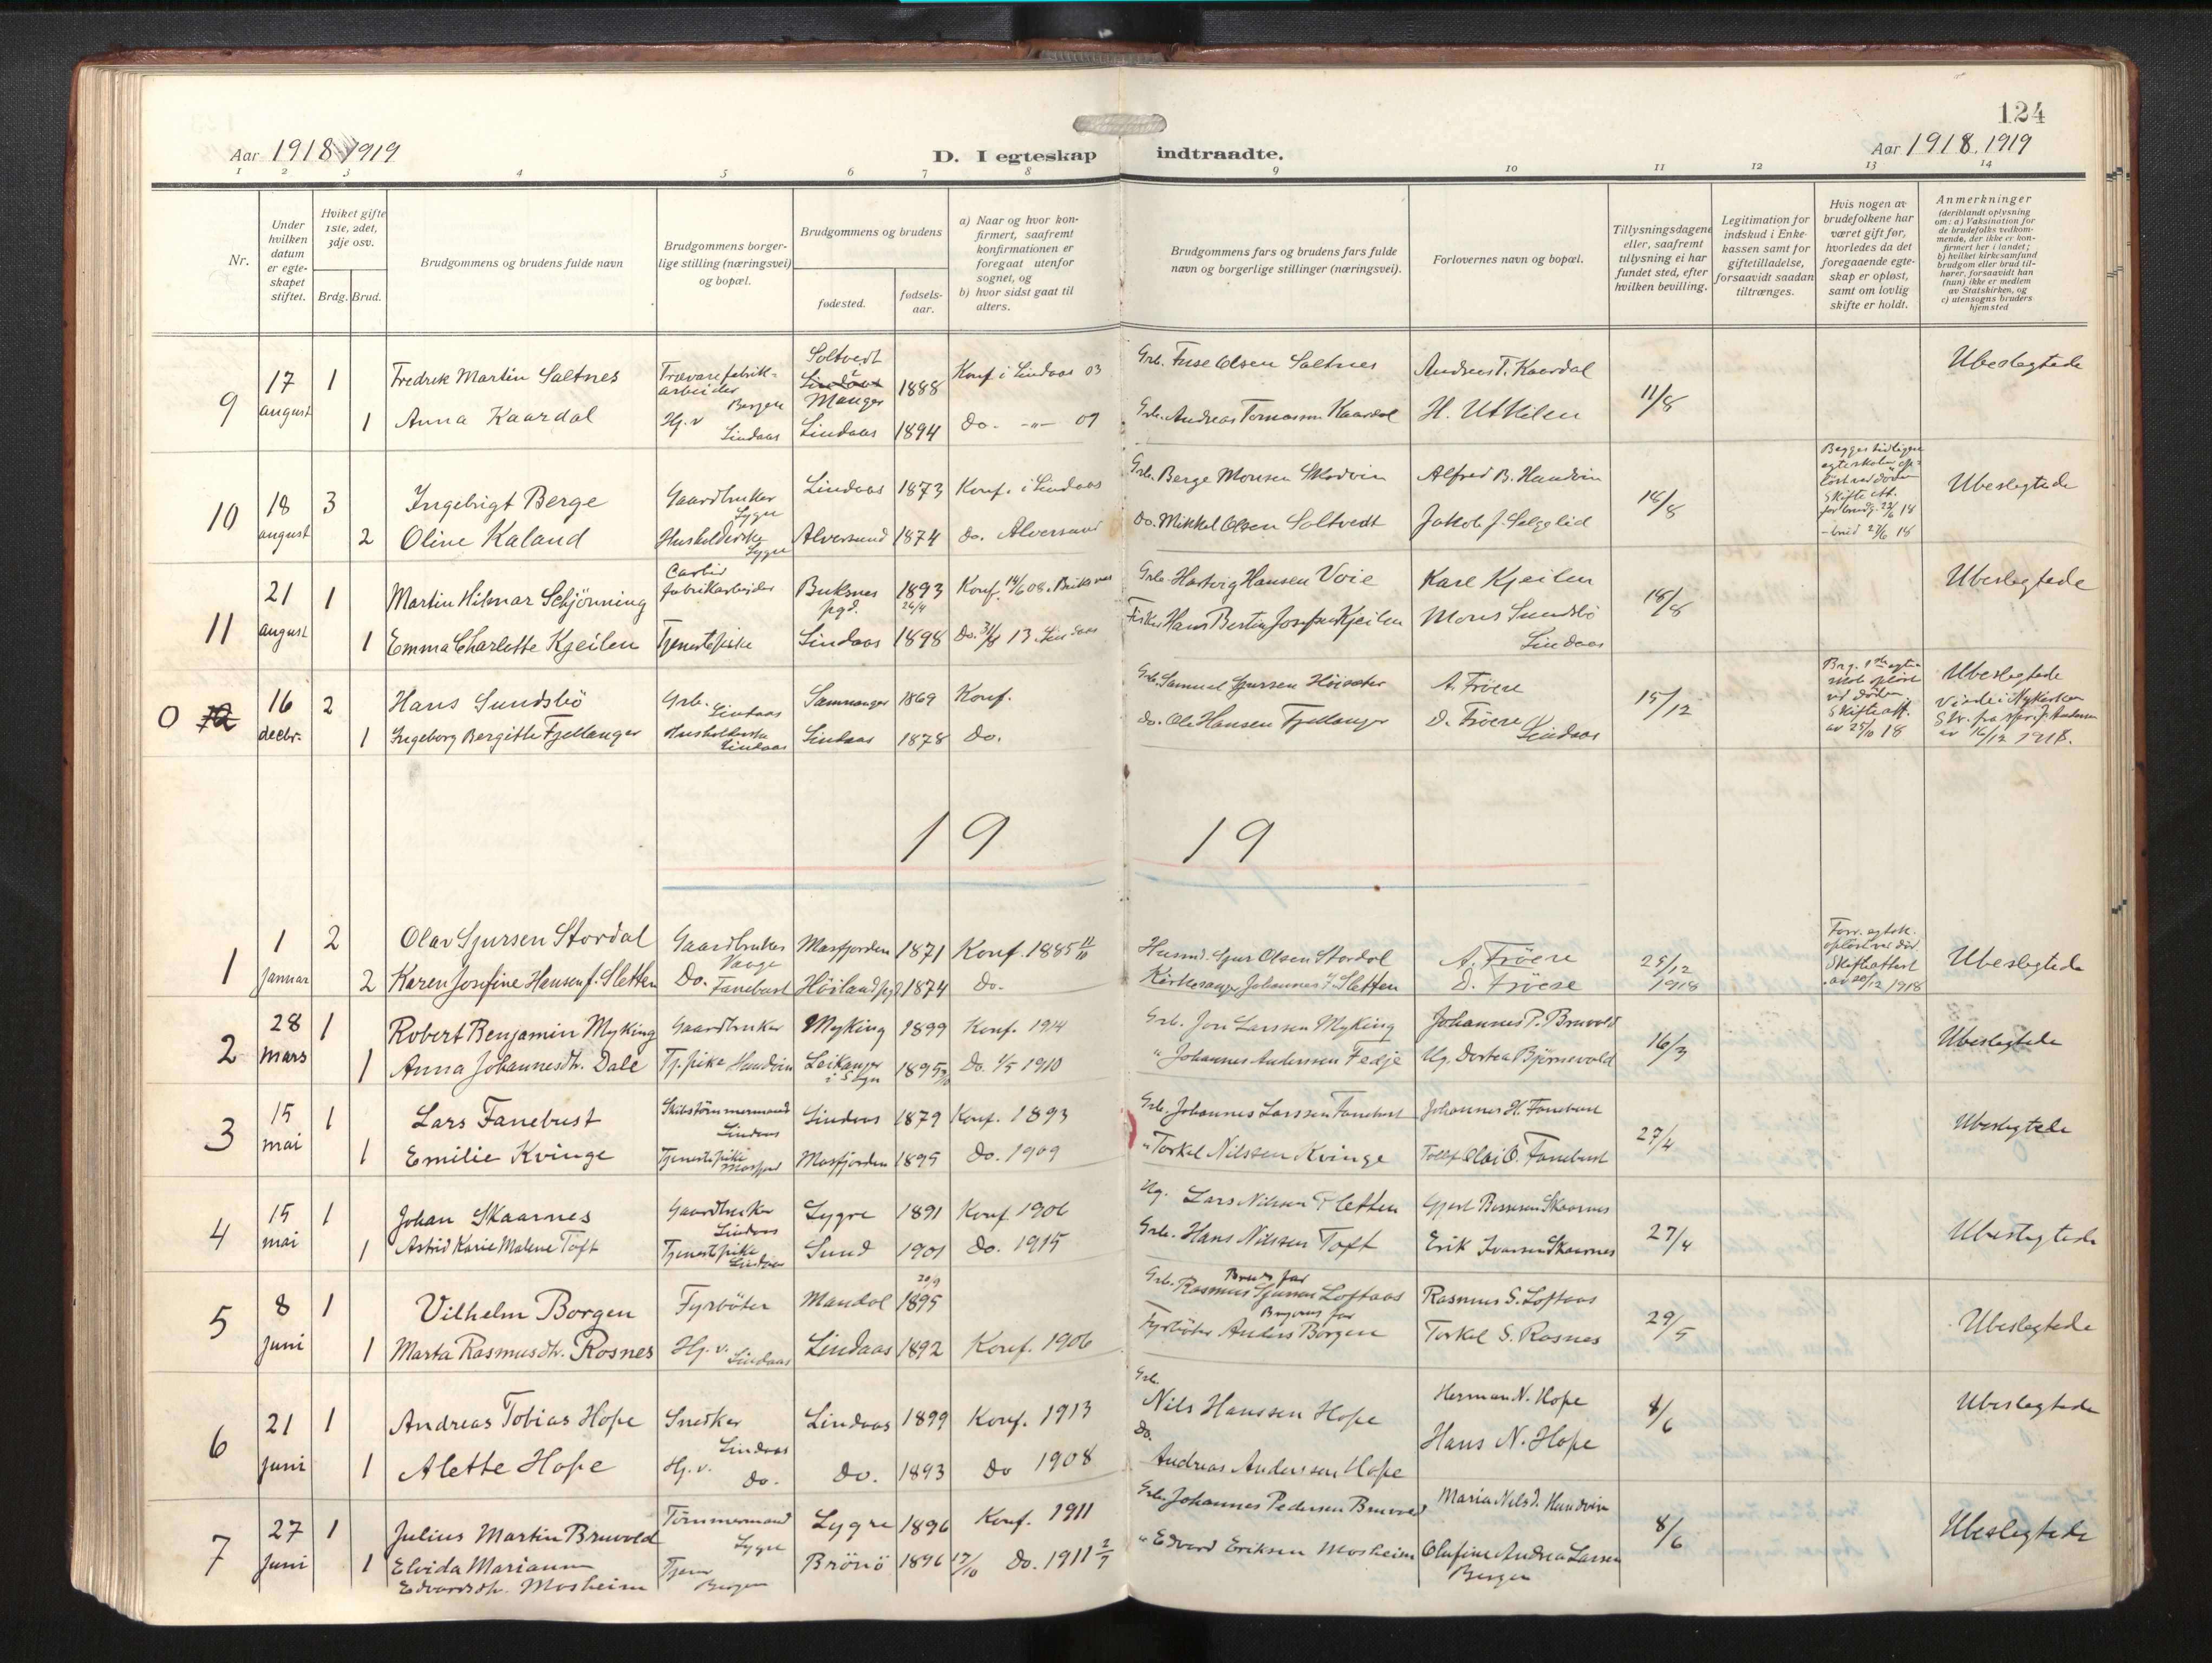 124
Aar 1918-1919
D. I egteskap indtraadte.
Aar 1918, 1919
1 2 3 4 5 6 7 8 9 10 11 12 13 14
Nr.
Under hvilken datum er egteskapet stiftet.
Hviket gifte 1ste, 2det, 3dje osv.
Brdg. Brud.
Brudgommens og brudens fulde navn
Brudgommens borgerlige stilling (næringsvei) og bopæl.
Brudgommens og brudens
fødested.
fødselsaar.
a) Naar og hvor konfirmert, saafremt konfirmationen er foregaat utenfor sognet, og
b) hvor sidst gaat til alters.
Brudgommens fars og brudens fars fulde navn og borgerlige stillinger (næringsvei).
Forlovernes navn og bopæl.
Tillysningsdagene eller, saafremt tillysning ei har fundet sted, efter hvilken bevilling.
Legitimation for indskud i Enkekassen samt for giftetilladelse, forsaavidt saadan tiltrænges.
Hvis nogen av brudefolkene har været gift før, hvorledes da det foregaaende egteskap er opløst, samt om lovlig skifte er holdt.
Anmerkninger
(deriblandt oplysning om: a) Vaksination for de brudefolks vedkommende, der ikke er konfirmert her i landet; b) hvilket kirkesamfund brudgom eller brud tilhører, forsaavidt han (hun) ikke er medlem av Statskirken, og c) utensogns bruders hjemsted
9 17 august 1 Fredrik Martin Saltnes Trævarefabrikarbeider Bergen Soltvedt Lindaas Manger 1888 Konf i Lindaas 03 Grb. Fuse Olsen Saltnes Andreas T. Kaardal 11/8 Ubeslegtede
1 Anna Kaardal Hj. v Lindaas Lindaas 1894 Do. -"- 09 Grb. Andreas Tomassen Kaardal H. Utkilen
10 18 august 3 Ingebrigt Berge Gaardbruker Lygre Lindaas 1873 Konf. i Lindaas Grb. Berge Monsen Skodvin Alfred B. Hundvin 18/8 Ubeslegtede
2 Oline Kaland Husholderske Lygre Alversund 1874 do. Alversund Do. Mikkel Olsen Soltvedt Jakob J.
Begges tidligere egteskaber opløst ved døden Skifte att. for brudg. 22/6 18
- brud 27/6 18
11 21 august 1 Martin Hilmar Schjönning Carbid fabrikarbeider Buksnes pgd. 1893 26/4 Konf. 14/6 08. Buksnes Grb. Hartvig Hansen Voie Karl Kjeilen 18/8 Ubeslegtede
1 Emma Charlotte Kjeilen Tjenestepike Lindaas 1898 Do. 13. Lindaas Fisker Hans Bertin Josefsen Kjeilen Mons Sundsbö Lindaas
0 12 16 decbr. 2 Hans Sundsbö Grb. Lindaas Samnanger 1869 Konf. Grb. Samuel Sjursen Höisæter A. Fröere 15/12 Ubeslegtede
1 Ingeborg Bergithe Fjellanger Husholderske Lindaas Lindaas 1878 Do. do. Ole Hansen Fjellanger D. Fröere Lindaas
Brg. 1ste egteskab opløst ved døden. Skifteatt. av 25/10 18
Viede i Nykirken
av 16/12 1918.
19 19
1 1 januar 2 Olav Sjursen Stordal Gaardbruker Vaage Masfjorden 1871 Konf. 1885 11/10 Husmd. Sjur Olsen Stordal A. Fröere 25/12 1918 Ubeslegtede
2 Karen Josefine Hansen f. Sletten Do. Fanebust Höiland pgd 1874 Do. Kirkesanger Johannes J. Sletten D. Fröere
Forr. egtsk. opløst ved død Skifteattest av 20/12 1918
2 28 mars 1 Robert Benjamin Myking Gaardbruker Myking 1899 Konf. 1914 Grb. Jon Larssen Myking Johannes P. Bruvold 16/3 Ubeslegtede
1 Anna Johannesdtr. Dale Tj. pike Hundvin Leikanger i Sogn 1895 Do. 1/5 1910 " Johannes Andersen Fedje Ug. Dortea Björnevold
3 15 mai 1 Lars Fanebust Skibstömmermand Lindaas Lindaas 1879 Konf. 1893 Grb. Johannes Larssen Fanebust Johannes H. Fanebust 27/4 Ubeslegtede
1 Emilie Kvinge Tjenestepike Masfjord Masfjorden 1895 Do. 1909 " Torkel Nilssen Kvinge Olai O. Fanebust
4 15 mai 1 Johan Skaarnes Gaardbruker Lindaas Lygre 1891 Konf 1906 Ug. Lars Nilssen Fletten Gjert Skaarnes 27/4 Ubeslegtede
1 Astrid Karie Malene Toft Tjenestpike Lindaas Sund 1901 Do. 1915 Grb. Hans Nilssen Toft Erik Ivarsen Skaarnes
5 8 juni 1 Vilhelm Borgen Fyrböter Mandal 20/9 1895 Bruds far Grb. Rasmus Sjursen Loftaas Rasmus S. Loftaas 29/5 Ubeslegtede
1 Marta Rasmusdtr. Rosnes Hj. v. Lindaas Lindaas 1892 Konf. 1906 Brgoms far Fyrböter Anders Borgen Torkel S. Rosnes
6 21 juni 1 Andreas Tobias Hope Snedker Lindaas Lindaas 1899 Konf. 1913 Grb. Nils Hanssen Hope Herman N. Hope 8/6 Ubeslegtede
1 Alette Hope Hj. v. do. Do. 1893 Do 1908 Do. Andreas Anderssen Hope Hans N. Hope
7 27 juni 1 Julius Martin Bruvold Tömmermand Lygre Lygre 1896 Konf. 1911 Grb. Johannes Pedersen Bruvold Maria Nilsd. Hundvin 8/6 Ubeslegtede
1 Elvida Mariann Edvardsdtr. Mosheim Tjen Bergen Brönö 1896 17/10 Do. 1911 2/7 " Edvard Eriksen Mosheim Olufine Andrea Larsen Bergen